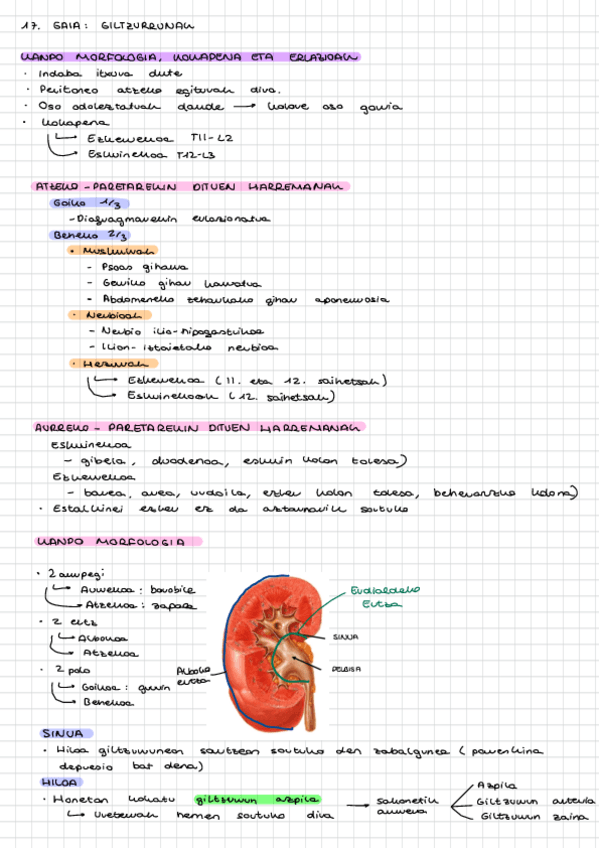 17. GAIA: GILTZURRUNAK
KANPO MORFOLOGIA, KOKAPENA ETA ERLAZIOAK
· Indaba itxura dute
· Peritoneo atzeko egiturak dira.
· Oso odoleztatuak daude → kolore oso gorria
· Kokapena
Ezkerrekoa T11-L2
Eskuinekoa T12-L3
ATZEKO-PARETAREKIN DITUEN HARREMANAK
Goiko 1/3
- Diafragmarekin erlazionatua
Beheko 2/3
· Muskuluak
- Psoas giharra
- Gerriko gihar karratua
- Abdomeneko zeharkako gihar aponeurosia
· Nerbioak
- Nerbio ilio-hipogastrikoa
- Ilion-iztaietako nerbioa
· Hezurrak
Ezkerrekoa (11. eta 12. saihetsak)
Eskuinekoak (12. saihetsak)
AURREKO-PARETAREKIN DITUEN HARREMANAK
Eskuinekoa
- gibela, duodenoa, eskuin kolon tolesa)
Ezkerrekoa
- barea, area, urdaila, ezker kolon tolesa, beheranzko kolona)
· Estalkinei esker ez da aztarnarik sortuko
KANPO MORFOLOGIA
· 2 aurpegi
Aurrekoa: borobila
Atzekoa: zapala
· 2 ertz
Albokoa
Atzekoa
· 2 polo
Goikoa: gurrin
Behekoa
Erdialdeko
Ertza
SINUA
PELBISA
Alboko
ertza
SINUA
· Hiloa giltzurrunean sartzean sortuko den zabalgunea (parenkima
depresio bat dena)
HILOA
· Honetan kokatu giltzurrun azpila → sakonetik aurrera
Azpila
Giltzurrun arteria
Giltzurrun zaina
Ureterrak hemen sortuko dira